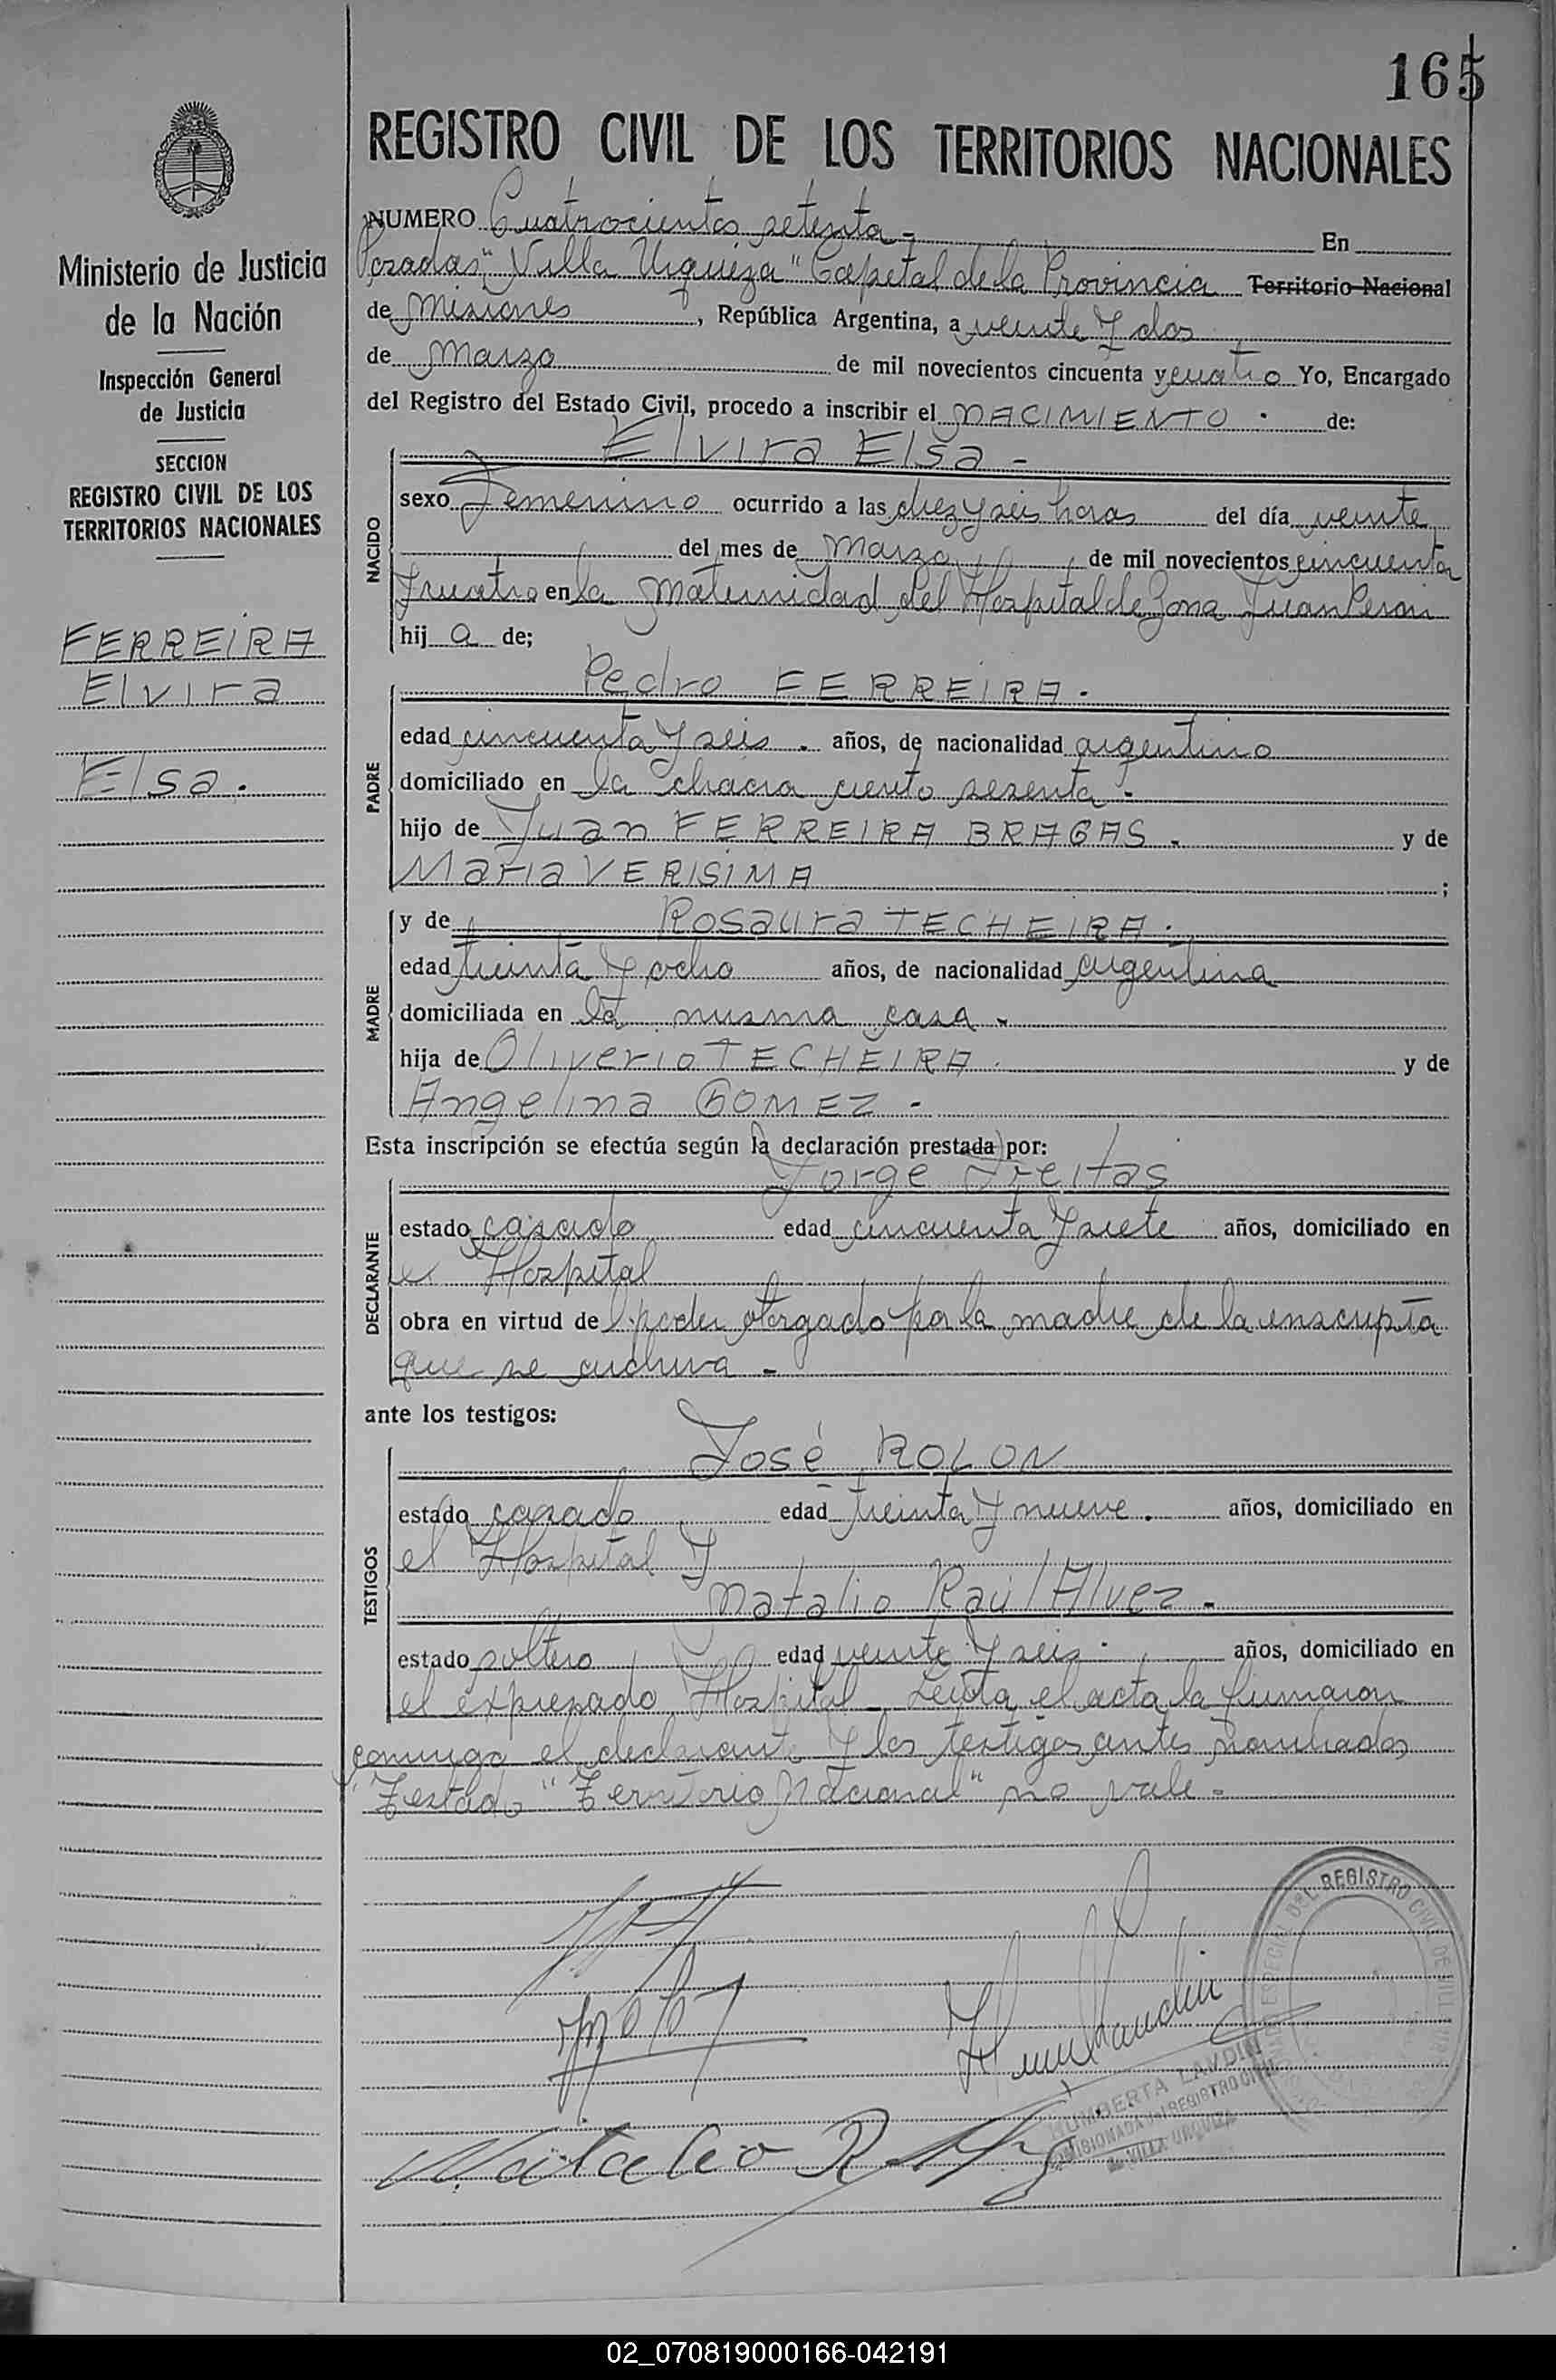 165
REGISTRO CIVIL DE LOS TERRITORIOS NACIONALES
Ministerio de Justicia
de la Nación
Inspección General
de Justicia
SECCION
REGISTRO CIVIL DE LOS
TERRITORIOS NACIONALES
FERREIRA
Elvira
Elsa.
NUMERO Cuatrocientos setenta - En
Posadas, "Villa Urquiza" Capital de la Provincia Territorio Nacional
de Misiones, República Argentina, a veinte y dos
de Marzo de mil novecientos cincuenta y cuatro Yo, Encargado
del Registro del Estado Civil, procedo a inscribir el NACIMIENTO. de:
NACIDO
Elvira Elsa -
sexo Femenino ocurrido a las diez y seis horas del día veinte
del mes de Marzo de mil novecientos cincuenta
y cuatro en la Maternidad del Hospital de Zona Juan Peron
hij a de;
PADRE
Pedro FERREIRA.
edad cincuenta y seis. años, de nacionalidad argentino
domiciliado en la chacra ciento sesenta -
hijo de Juan FERREIRA BRAGAS. y de
Maria VERISIMA ;
MADRE
y de Rosaura TECHEIRA.
edad treinta y ocho años, de nacionalidad argentina
domiciliada en la misma casa -
hija de Oliverio TECHEIRA. y de
Angelina GOMEZ -
Esta inscripción se efectúa según la declaración prestada por:
DECLARANTE
Jorge Freitas
estado casado edad cincuenta y siete años, domiciliado en
el Hospital
obra en virtud del poder otorgado por la madre de la inscripta
que se archiva -
ante los testigos:
TESTIGOS
José ROLON
estado casado edad treinta y nueve. años, domiciliado en
el Hospital y
Natalio Raúl Alvez -
estado soltero edad veinte y seis. años, domiciliado en
el expresado Hospital - Leida el acta la firmaron
conmigo el declarante y los testigos antes nombrados
Testado "Territorio Nacional" no vale -
DEL REGISTRO CIVIL DE VILLA
HUMBERTA LANDIN
COMISIONADA del REGISTRO CIVIL
VILLA URQUIZA
Natalio R
02_070819000166-042191